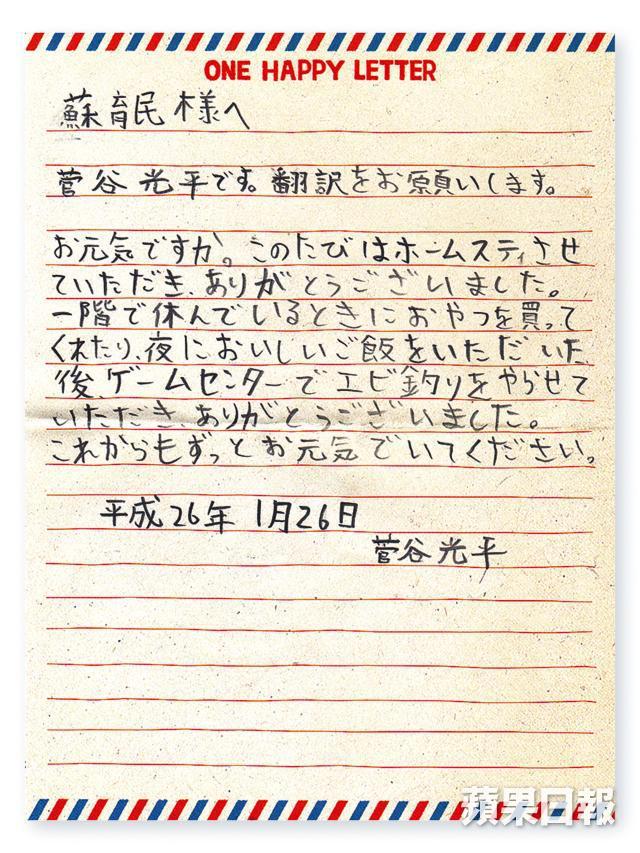 ONE HAPPY LETTER
蘇育民様へ
菅谷光平です。翻訳をお願いします。
お元気ですか。このたびはホームスティさせ
ていただき、ありがとうございました。
一階で休んでいるときにおやつを買って
くれたり、夜においしいご飯をいただいた
後、ゲームセンターでエビ釣りをやらせて
いただき、ありがとうございました。
これからもずっとお元気でいてください。
平成26年 1月26日
菅谷光平
蘋果日報